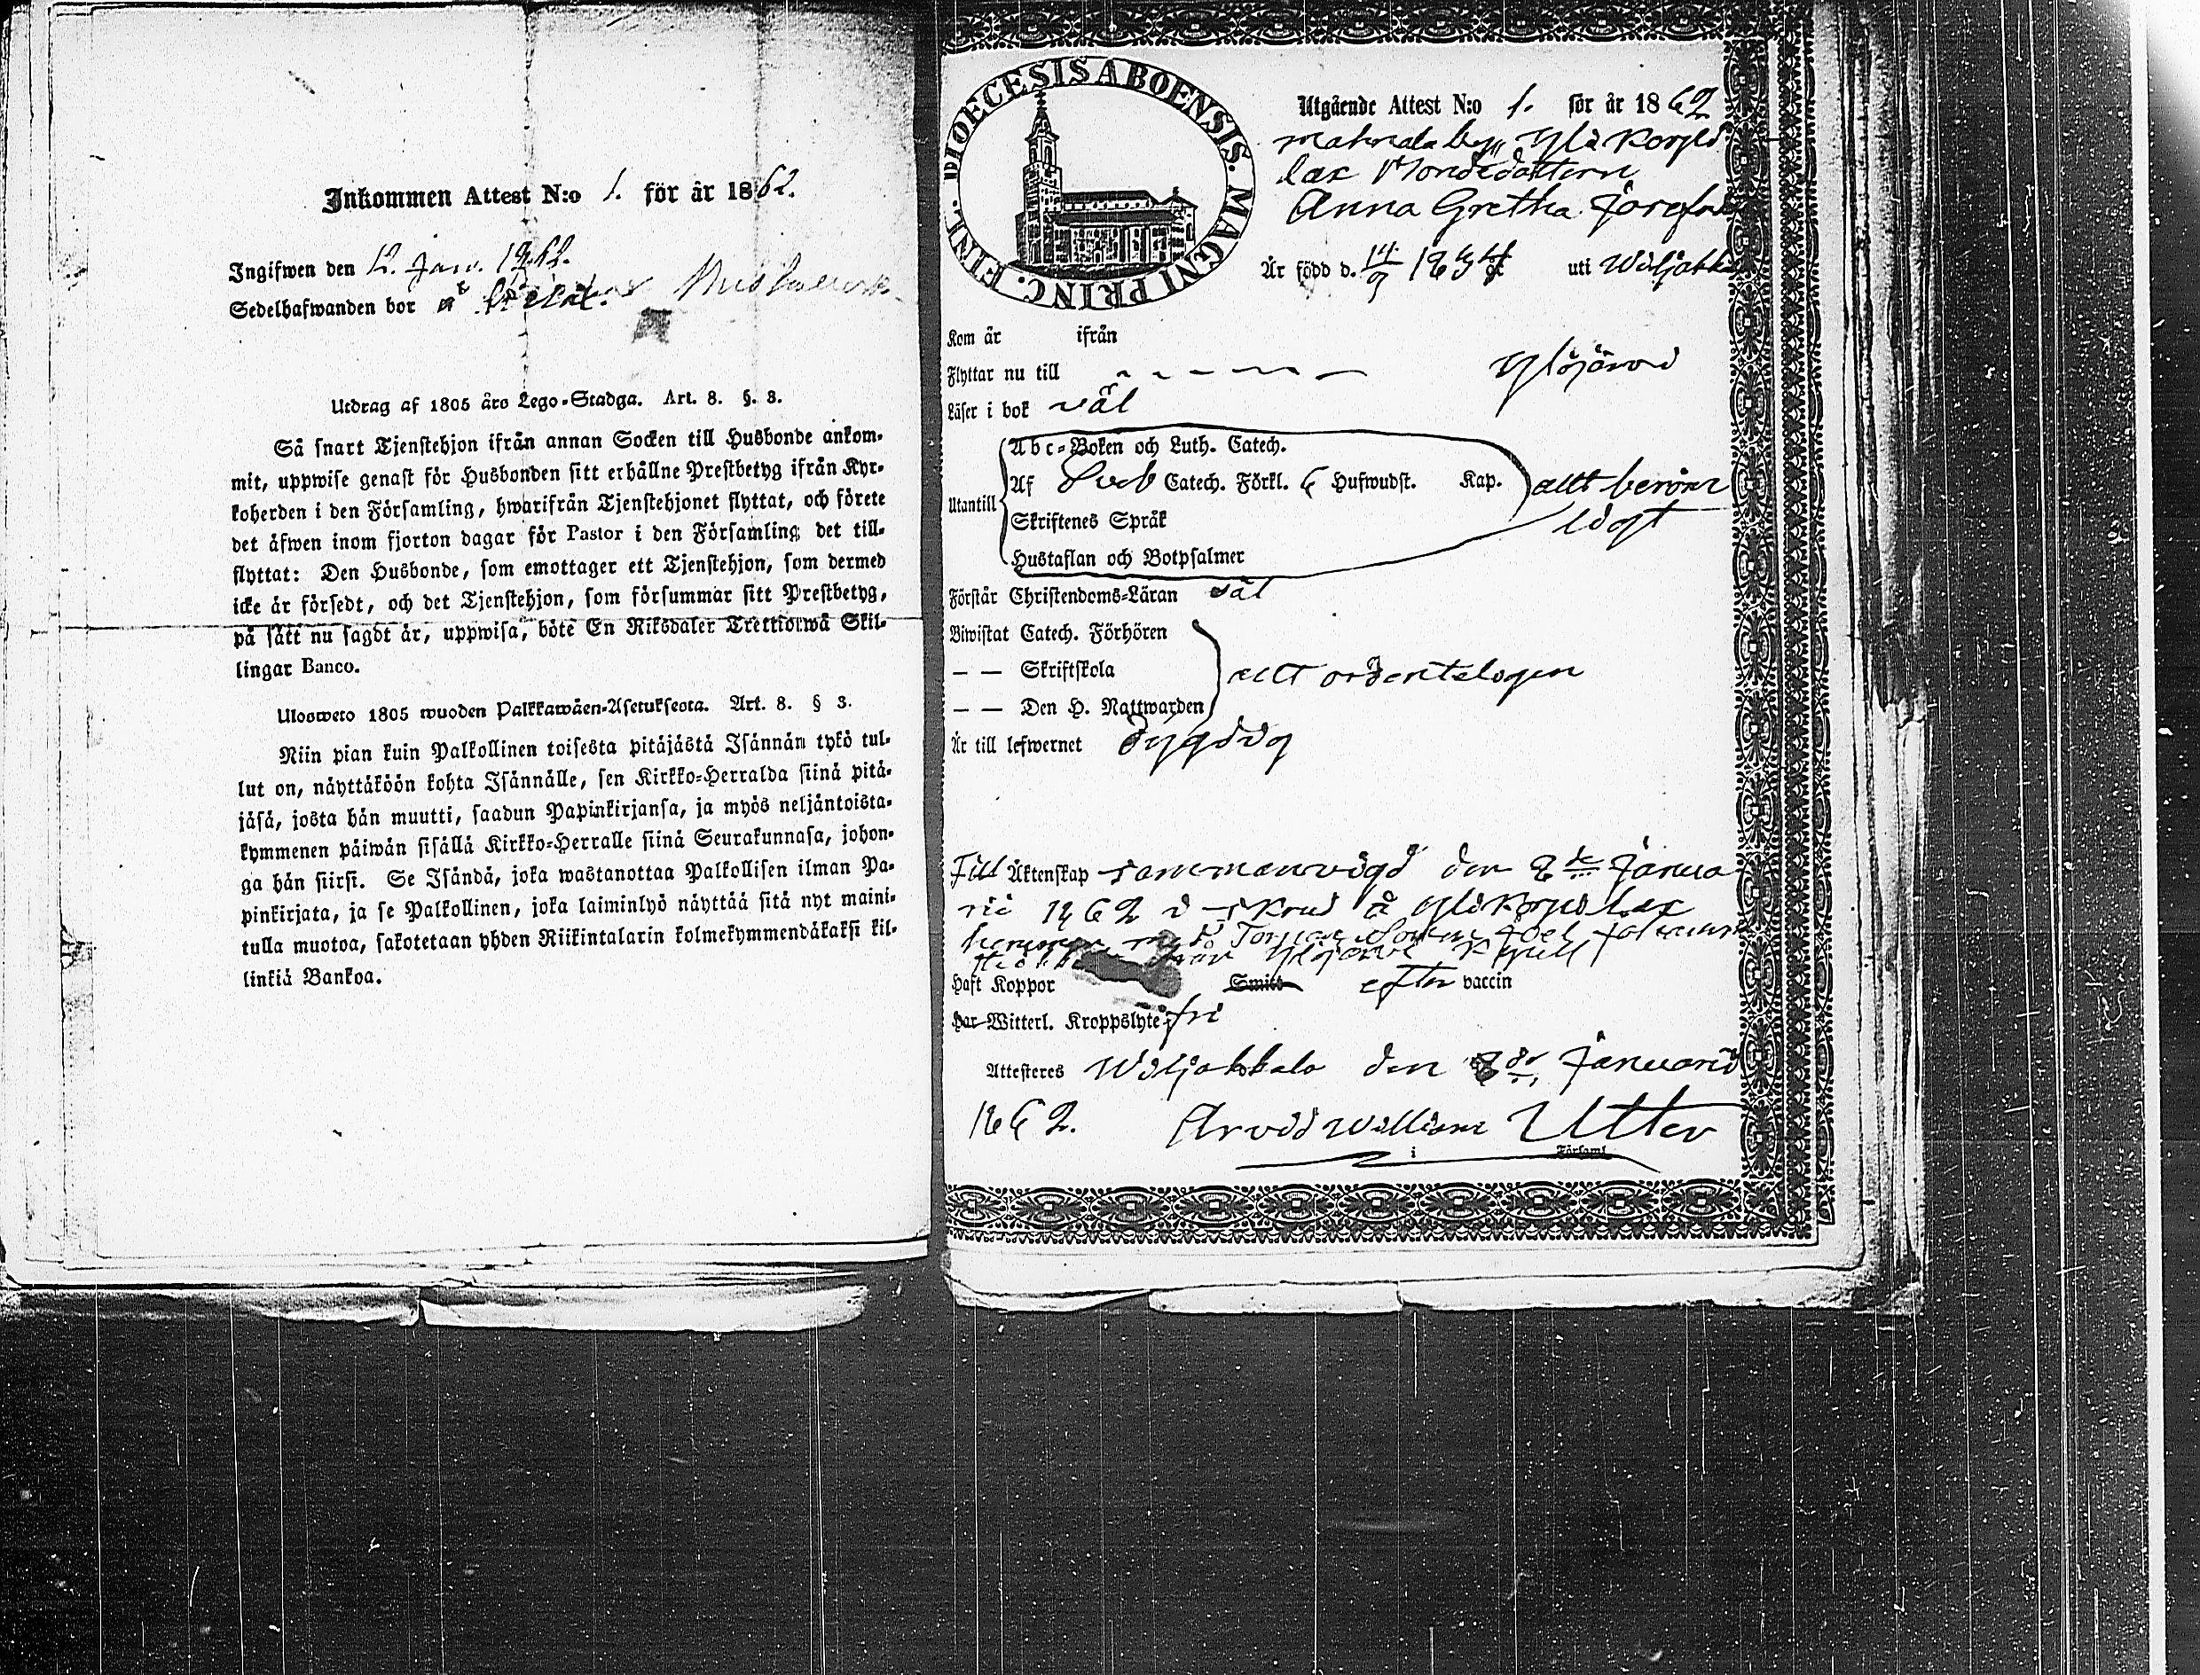 Inkommen Attest N:o 1. för år 1862.
Ingifwen den 12. Jan. 1862.
Sedelhafwanden bor å
Utdrag af 1805 års Lego-Stadga. Art. 8. §. 3.
Så snart Tjenstehjon ifrån annan Socken till Husbonde ankom-
mit, uppwise genast för Husbonden sitt erhållne Prestbetyg ifrån Kyr-
koherden i den Församling, hwarifrån Tjenstehjonet flyttat, och förete
det äfwen inom fjorton dagar för Pastor i den Församling det till-
flyttat: Den Husbonde, som emottager ett Tjenstehjon, som dermed
icke är försedt, och det Tjenstehjon, som försummar sitt Prestbetyg,
på sätt nu sagdt är, uppwisa, böte En Riksdaler Trettiotwå Skil-
lingar Banco.
Uloswetо 1805 wuoden Palkkawäen-Asetuksesta. Art. 8. § 3.
Niin pian kuin Palkollinen toisesta pitäjästä Isännän tykö tul-
lut on, näyttäköön kohta Isännälle, sen Kirkko-Herralda siinä pitä-
jäsä, josta hän muutti, saadun Papinkirjansa, ja myös neljäntoista-
kymmenen päiwän sisällä Kirkko-Herralle siinä Seurakunnasa, johon-
ga hän siirsi. Se Isändä, joka wastanottaa Palkollisen ilman Pa-
pinkirjata, ja se Palkollinen, joka laiminlyö näyttää sitä nyt maini-
tulla muotoa, sakotetaan yhden Riikintalarin kolmekymmendäkaksi kil-
linkiä Bankoa.
DIOECESIS ABOENSIS. MAGNI PRINC. FINL.
Utgående Attest N:o 1. för år 1862
lax
Anna Gretha
Är född d. 14/9 18 uti Wiljakka
Kom år ifrån
Flyttar nu till - - - - - Ylöjärvi
Läser i bok väl
Abc-Boken och Luth. Catech.
Utantill Af Sveb Catech. Förkl. 6 Hufwudst. Kap. allt beröm
Skriftenes Språk ligt
Hustaflan och Botpsalmer
Förstår Christendoms-Läran väl
Biwistat Catech. Förhören
— — Skriftskola allt ordenteligen
— — Den H. Nattwarden
Är till lefwernet dygdig
Till Äktenskap sammanvigd den 8de Janua
rii 1862 i skrud å
Ylöjärvi
Haft Koppor Smitt efter vaccin
Har Witterl. Kroppslyte fri
Attesteres Wiljakkala den 8de Januarii
1862. Arvid William Utter
i Församl.